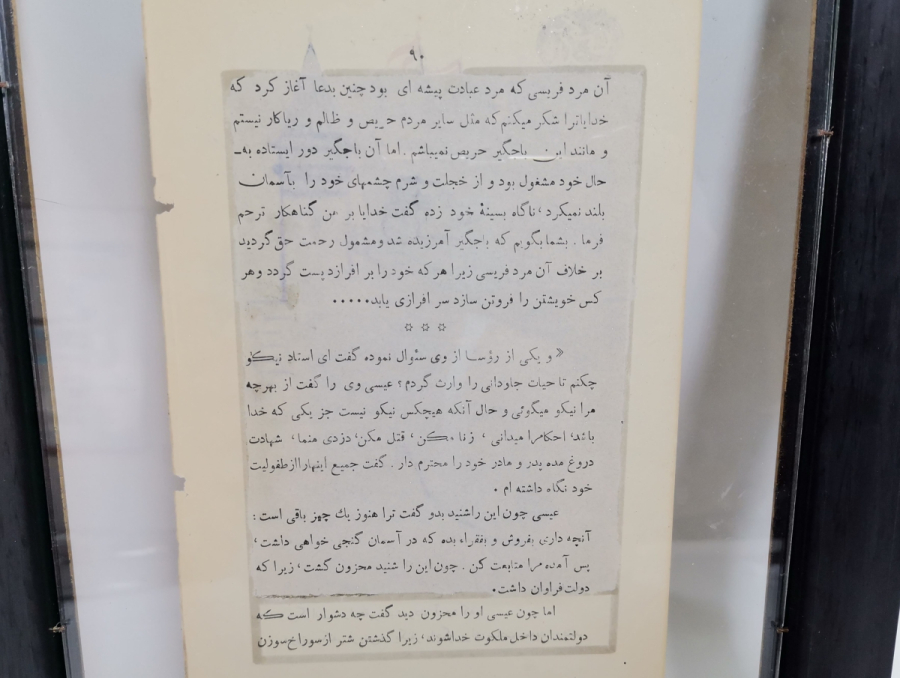 ۹۰
آن مرد فریسی که مرد عبادت پیشه ای بود چنین بدعا آغاز کرد که
خدایا ترا شکر میکنم که مثل سایر مردم حریص و ظالم و ریاکار نیستم
و مانند این باجگیر حریص نمیباشم . اما آن باجگیر دور ایستاده به‌ـ
حال خود مشغول بود و از خجلت و شرم چشمهای خود را بآسمان
بلند نمیکرد ، ناگاه بسینهٔ خود زده گفت خدایا بر من گناهکار ترحم
فرما . بشما بگویم که باجگیر آمرزیده شد و مشمول رحمت حق گردید
بر خلاف آن مرد فریسی زیرا هر که خود را بر افرازد پست گردد و هر
کس خویشتن را فروتن سازد سر افرازی یابد.....
☼ ☼ ☼
«و یکی از رؤسا از وی سئوال نموده گفت ای استاد نیکو
چکنم تا حیات جاودانی را وارث گردم؟ عیسی وی را گفت از بهرچه
مرا نیکو میگوئی و حال آنکه هیچکس نیکو نیست جز یکی که خدا
باشد، احکام را میدانی ، زنا مکن ، قتل مکن، دزدی منما، شهادت
دروغ مده پدر و مادر خود را محترم دار . گفت جمیع اینها را از طفولیت
خود نگاه داشته ام .
عیسی چون این را شنید بدو گفت ترا هنوز یك چیز باقی است :
آنچه داری بفروش و بفقراء بده که در آسمان گنجی خواهی داشت ،
پس آمده مرا متابعت کن . چون این را شنید محزون گشت ، زیرا که
دولت فراوان داشت.
اما چون عیسی او را محزون دید گفت چه دشوار است که
دولتمندان داخل ملکوت خدا شوند ، زیرا گذشتن شتر از سوراخ سوزن